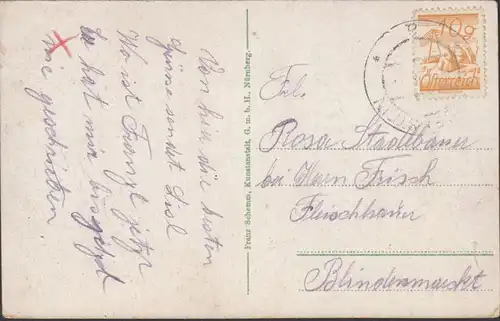 Von hier die besten
Grüsse sendet Lisl
Wo ist Franzl jetzt
Er hat mir
nie geschrieben.
Franz Schemm, Kunstanstalt, G. m. b. H., Nürnberg.
10g
Österreich
Frl.
Rosa Stadlbauer
bei Herrn Frisch
Fleischhauer
Blindenmarkt